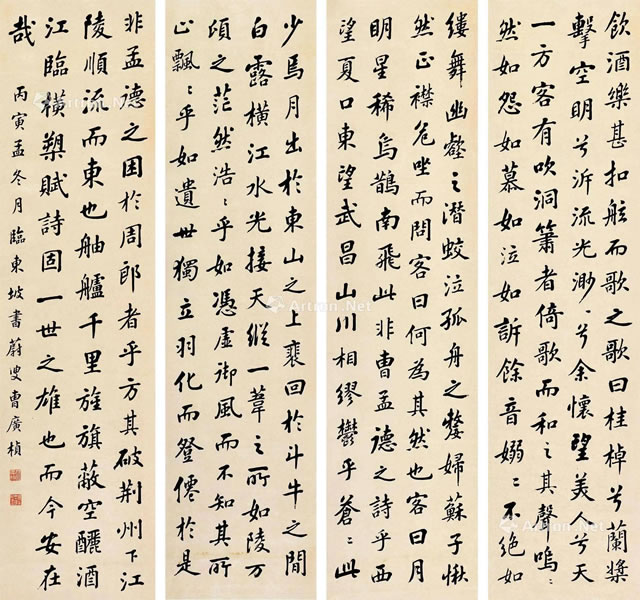 飲酒樂甚扣舷而歌之歌曰桂棹兮蘭槳
擊空明兮泝流光渺〻兮余懷望美人兮天
一方客有吹洞簫者倚歌而和之其聲嗚〻
然如怨如慕如泣如訴餘音嫋〻不絕如
縷舞幽壑之潛蛟泣孤舟之嫠婦蘇子愀
然正襟危坐而問客曰何為其然也客曰月
明星稀烏鵲南飛此非曹孟德之詩乎西
望夏口東望武昌山川相繆鬱乎蒼〻此
少焉月出於東山之上裴回於斗牛之間
白露橫江水光接天縱一葦之所如陵万
頃之茫然浩〻乎如憑虛御風而不知其所
止飄〻乎如遺世獨立羽化而登僊於是
非孟德之困於周郎者乎方其破荊州下江
陵順流而東也舳艫千里旌旗蔽空釃酒
江臨橫槊賦詩固一世之雄也而今安在
哉
丙寅孟冬月臨東坡書蔚叟曹廣楨
Artron.Net